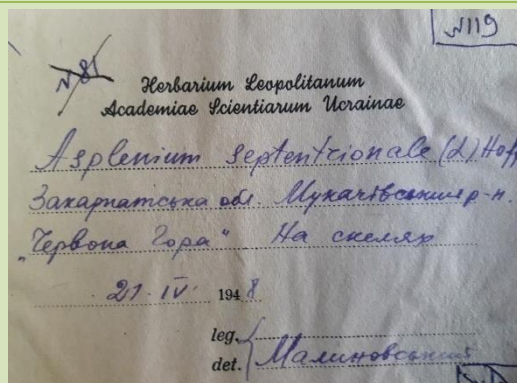 №119
№81
Herbarium Leopolitanum
Academiae Scientiarum Ucrainae
Asplenium septentrionale (L) Hoff
Закарпатська обл. Мукачівський р-н.
„Червона Гора" На скелях
21. IV. 1948
leg.
det. Малиновський